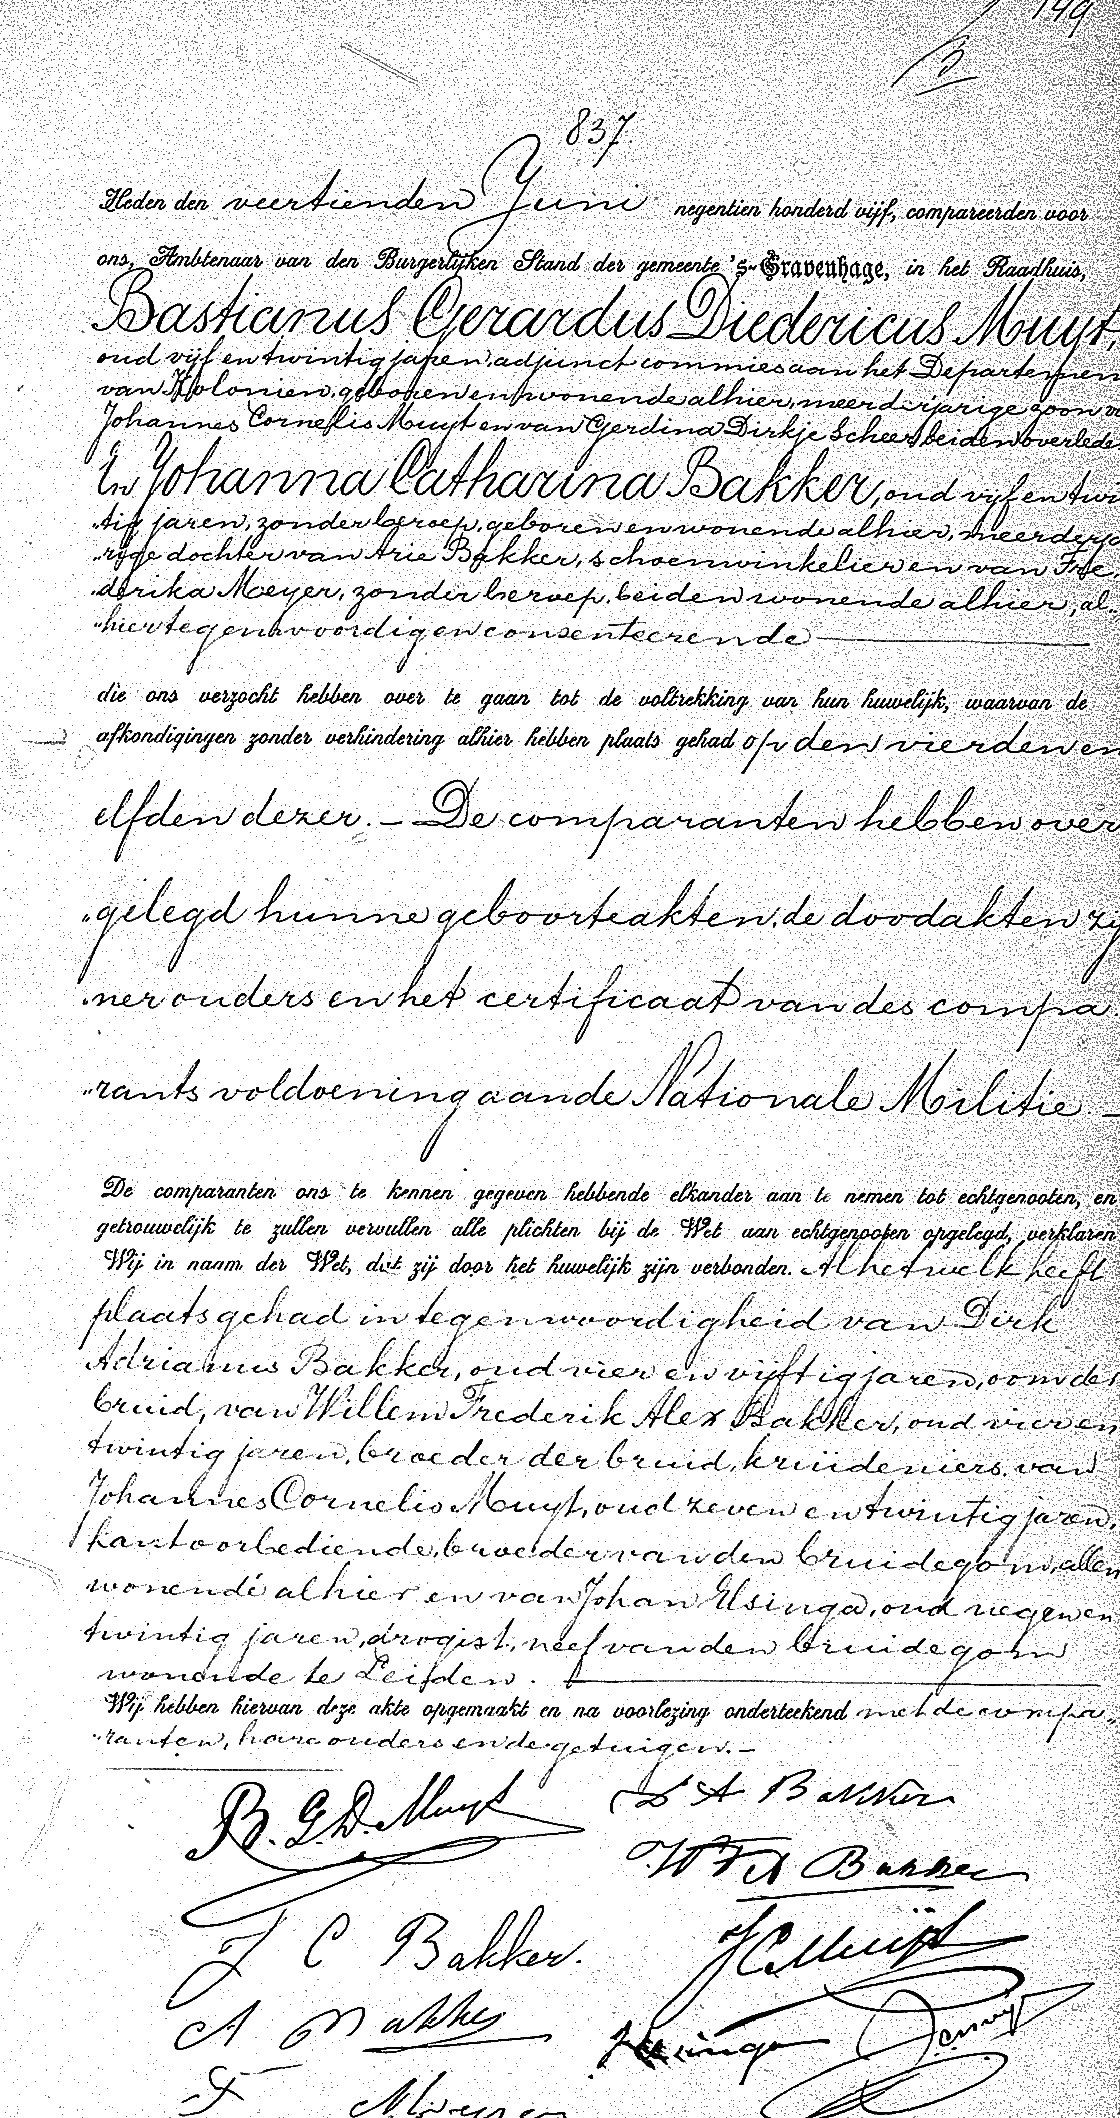 149
3
837
Heden den veertienden Juni negentien honderd vijf, compareerden voor
ons, Ambtenaar van den Burgerlijken Stand der gemeente 's-Gravenhage, in het Raadhuis,
Bastianus Gerardus Diedericus Muyt,
oud vijf en twintig jaren, adjunct commies aan het Departemen
van Kolonien, geboren en wonende alhier, meerderjarige zoon v
Johannes Cornelis Muyt en van Gerdina Dirkje Scheer, beiden overlede
En Johanna Catharina Bakker, oud vijf en twin
„tig jaren, zonder beroep, geboren en wonende alhier, meerderja
„rige dochter van Arie Bakker, schoenwinkelier en van Fre„
„derika Meyer, zonder beroep, beiden wonende alhier, al„
„hier tegenwoordig en consenteerende
die ons verzocht hebben over te gaan tot de voltrekking van hun huwelijk, waarvan de
afkondigingen zonder verhindering alhier hebben plaats gehad op den vierden en
elfden dezer. — De comparanten hebben over
„gelegd hunne geboorteakten, de doodakten zij
„ner ouders en het certificaat van des compa„
„rants voldoening aan de Nationale Militie —
De comparanten ons te kennen gegeven hebbende elkander aan te nemen tot echtgenooten, en
getrouwelijk te zullen vervullen alle plichten bij de Wet aan echtgenooten opgelegd, verklaren
Wij in naam der Wet, dat zij door het huwelijk zijn verbonden. Al hetwelk heeft
plaats gehad in tegenwoordigheid van Dirk
Adrianus Bakker, oud vier en vijftig jaren, oom der
bruid, van Willem Frederik Alex Bakker, oud vier en
twintig jaren, broeder der bruid, kruideniers, van
Johannes Cornelis Muyt, oud zeven en twintig jaren,
kantoorbediende, broeder van den bruidegom, allen
wonende alhier en van Johan Elsinga, oud negen en
twintig jaren, drogist, neef van den bruidegom
wonende te Leiden.
Wij hebben hiervan deze akte opgemaakt en na voorlezing onderteekend met de compa„
„ranten, hare ouders en de getuigen. —
B. G. D. Muyt
D A Bakker
W F A Bakker
J C Bakker.
J C Muijt
A Bakker
J Elsinga
F Meyer